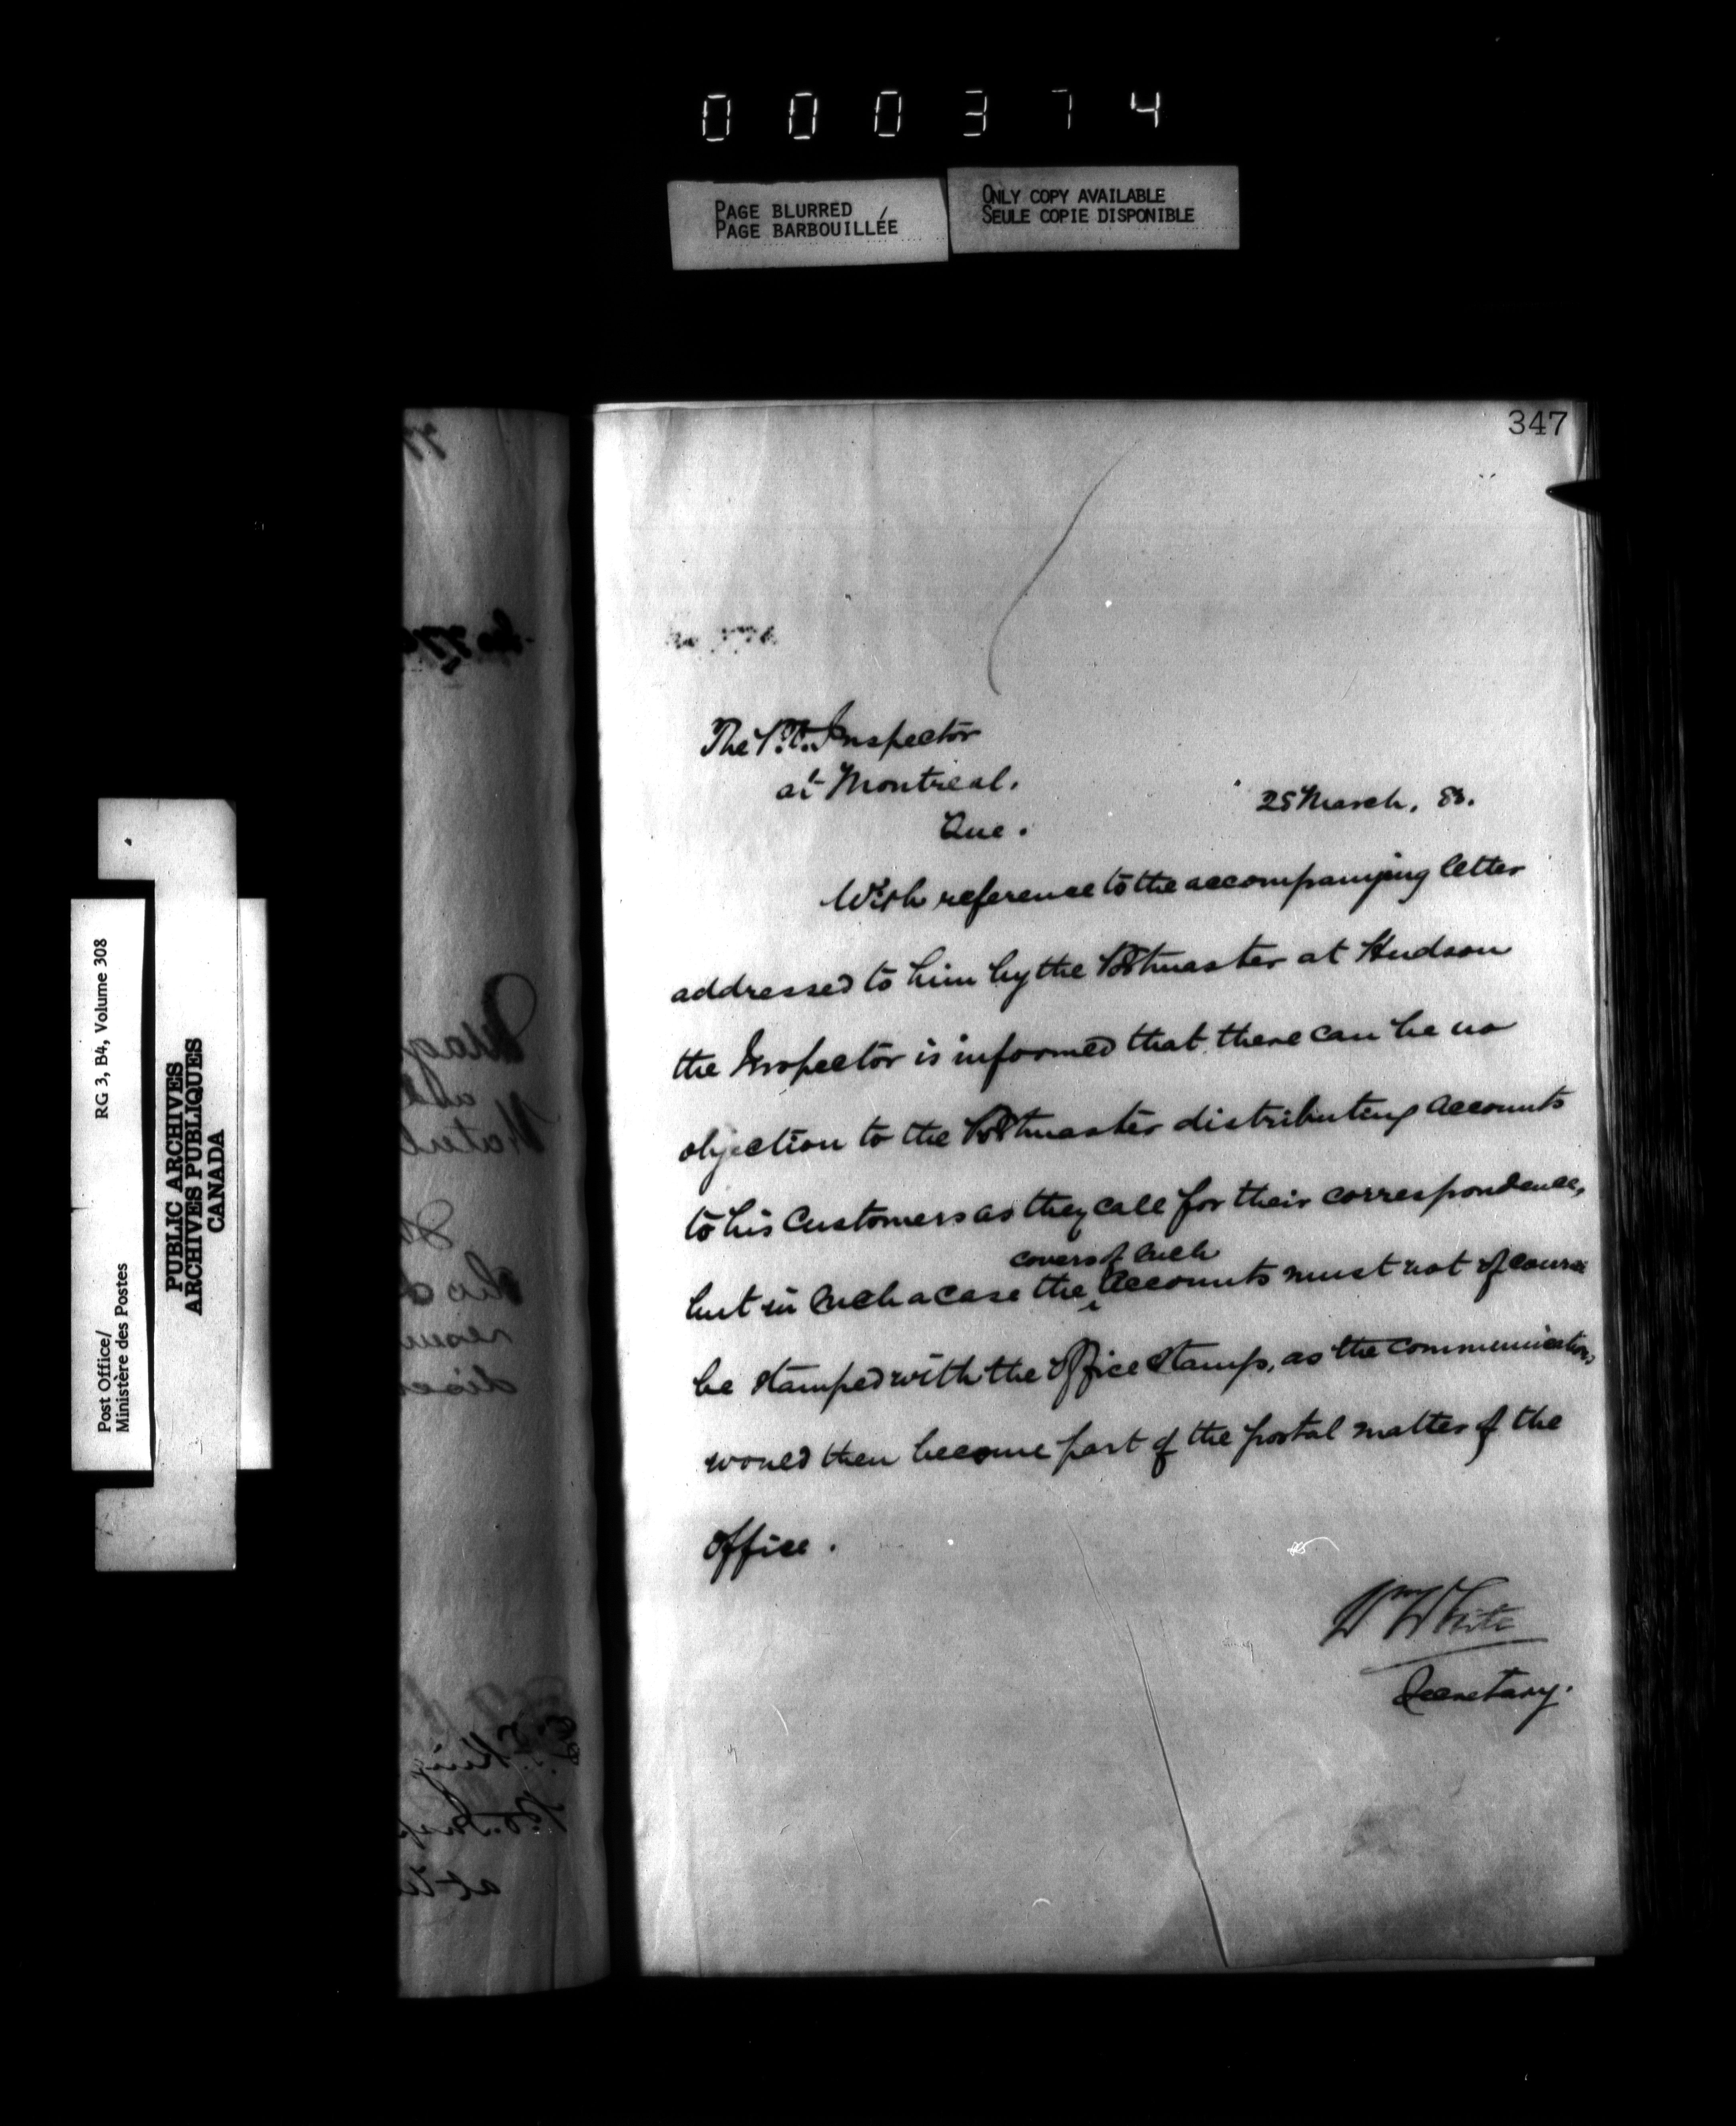 000374
PAGE BLURRED
PAGE BARBOUILLÉE
ONLY COPY AVAILABLE
SEULE COPIE DISPONIBLE
347
The P.O. Inspector
at Montreal.
Que.
25 March, 88.
With reference to the accompanying letter
addressed to him by the Postmaster at Hudson
the Inspector is informed that there can be no
objection to the Postmaster distributing accounts
to his Customers as they call for their correspondence,
covers of such
but in such a case the accounts must not of course
be stamped with the Office Stamp, as the communications
would then become part of the postal matter of the
Office.
Wm White
Secretary.
RG 3, B4, Volume 308
Post Office/
Ministère des Postes
PUBLIC ARCHIVES
ARCHIVES PUBLIQUES
CANADA